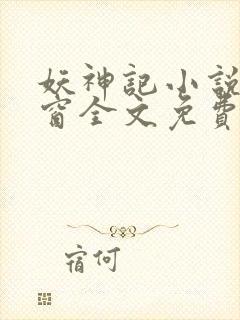 妖神記小說
窗全文免費
宿何